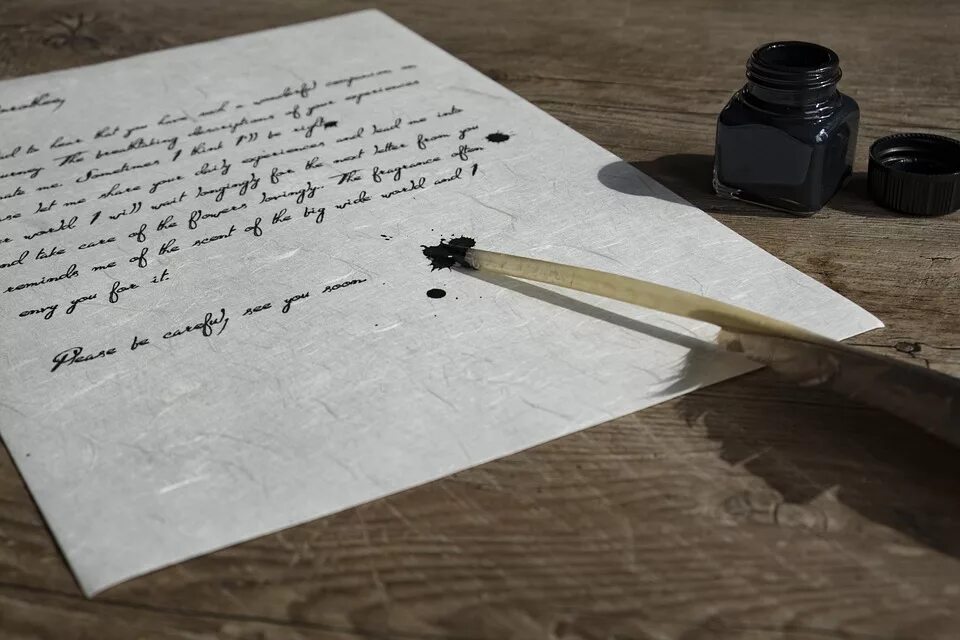 to hear that you have a wonderful companion on
The breathtaking descriptions of your experiences
me. Sometimes I think I'll be right
let me share your daily experiences and lead me into
world I will wait longingly for the next letter from you
and take care of the flowers lovingly. The fragrance often
reminds me of the scent of the big wide world and I
envy you for it.
Please be careful, see you soon